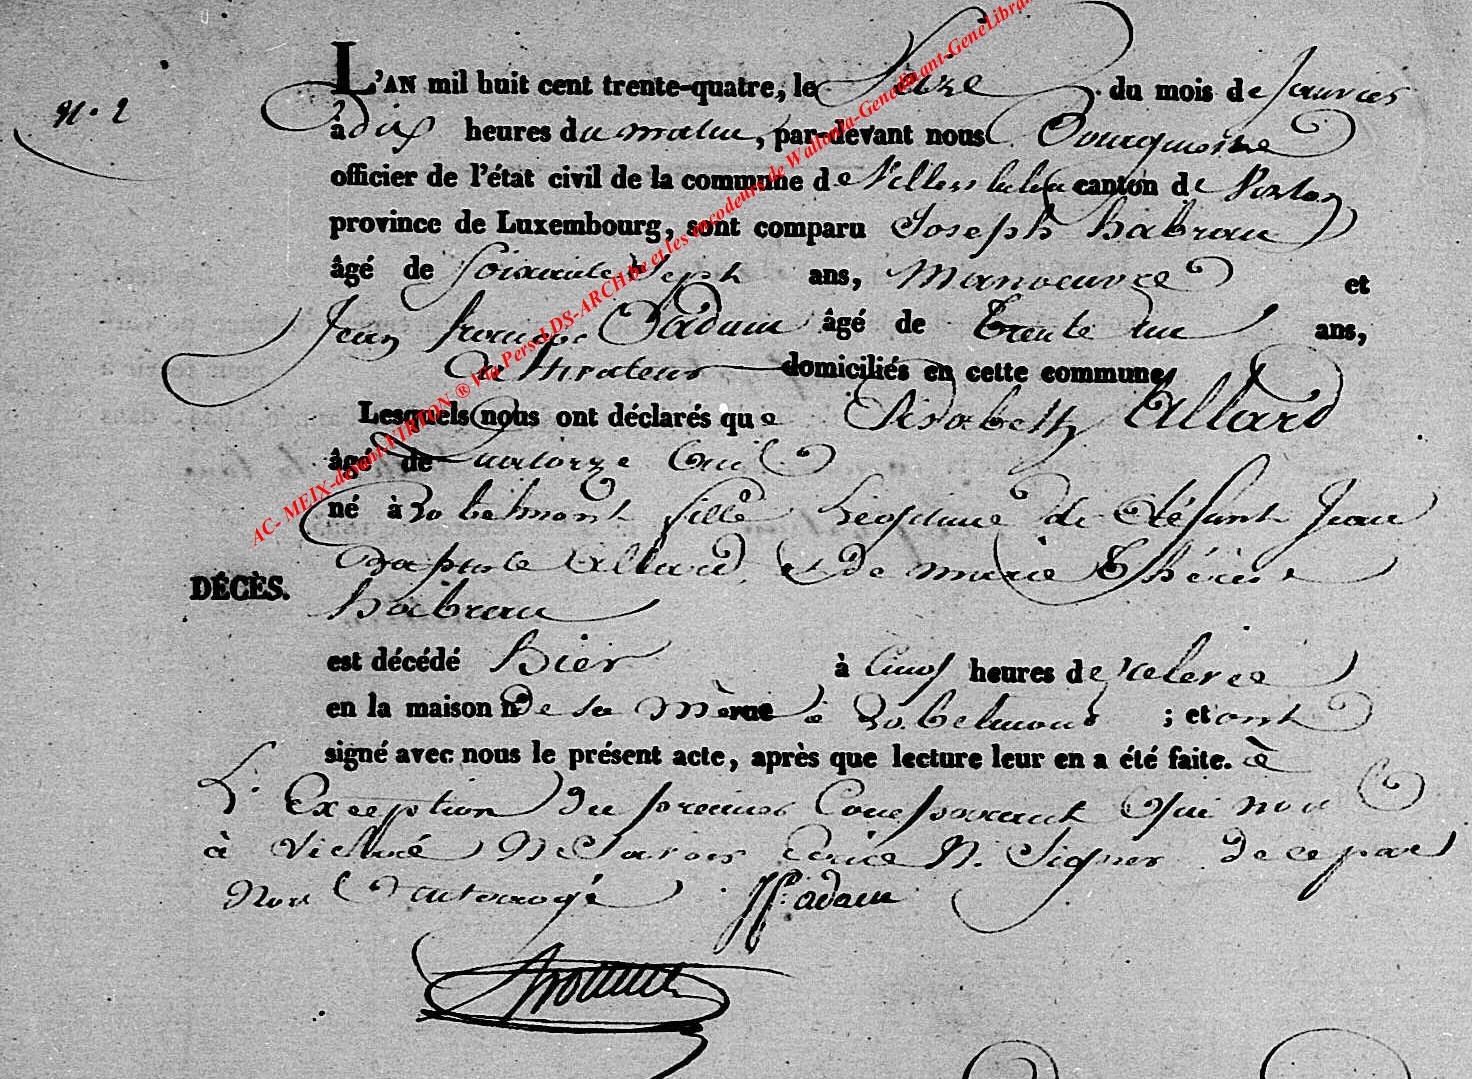 N. 2
L'AN mil huit cent trente-quatre, le Seize du mois de Janvier
à dix heures du matin, par-devant nous
officier de l'état civil de la commune de Villers la loue canton de Virton
province de Luxembourg, sont comparu Joseph habran
âgé de Soixante Sept ans, Manoeuvre et
Jean françois adam âgé de trente un ans,
Cultivateur domiciliés en cette commune,
Lesquels nous ont déclarés que Elisabeth Allard
âgé de quatorze ans
né à Robelmont fille de défunt Jean
Baptiste Allard, et de marie thérèse
habran
DÉCÈS.
est décédé hier à Cinq heures de relevée
en la maison n° de sa mère à Robelmont ; et ont
signé avec nous le présent acte, après que lecture leur en a été faite. à
L'Exception du premier Comparant qui nous
à déclaré Ne Savoir Ecrire N. Signer de ce par
Nous interrogé J f. adam
AC- MEIX-devant-VIRTON ® Via Pers-LDS-ARCH be et les encodeurs de Wallonia-Genedinant-GeneLibra